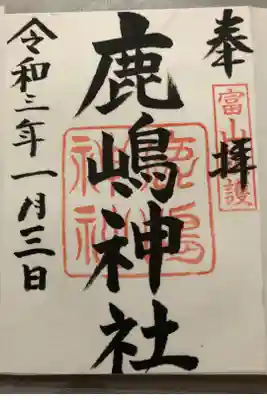 奉拝
富山
鹿嶋神社
鹿嶋
令和三年一月三日